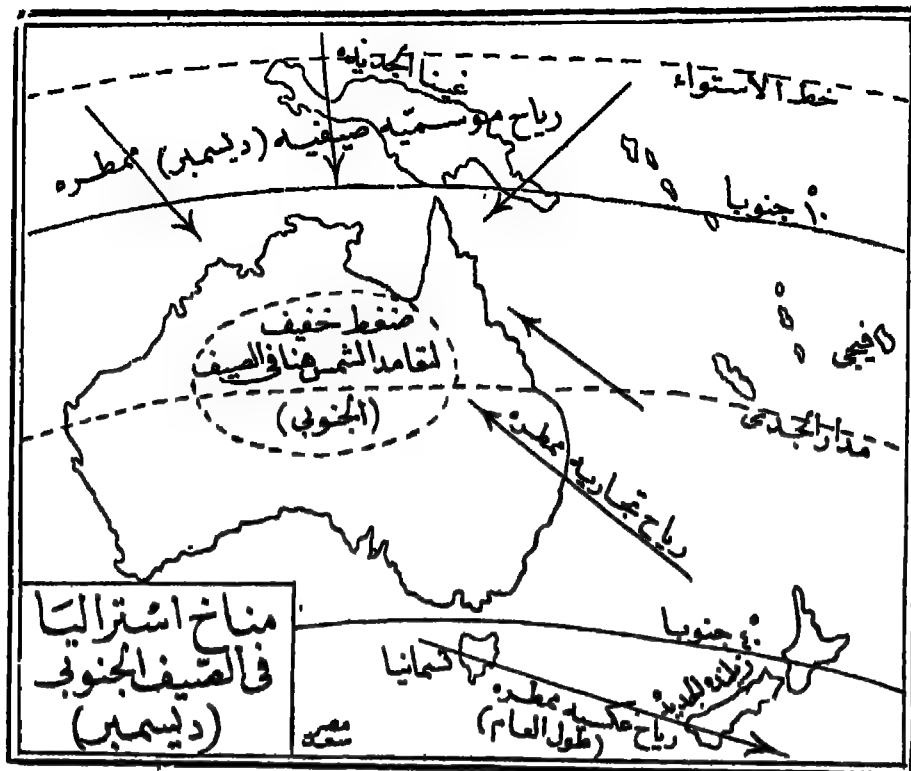 غينيا الجديدة
خط الاستواء
رياح موسميه صيفيه (ديسمبر) ممطره
١٠° جنوبا
ضغط خفيف
لتعامد الشمس هنا في الصيف
(الجنوبي)
فيجي
مدار الجدي
رياح تجاريه ممطره
٤٠° جنوبا
تسمانيا
زيلنده الجديدة
رياح عكسيه ممطره
(طول العام)
مناخ استراليا
في الصيف الجنوبي
(ديسمبر)